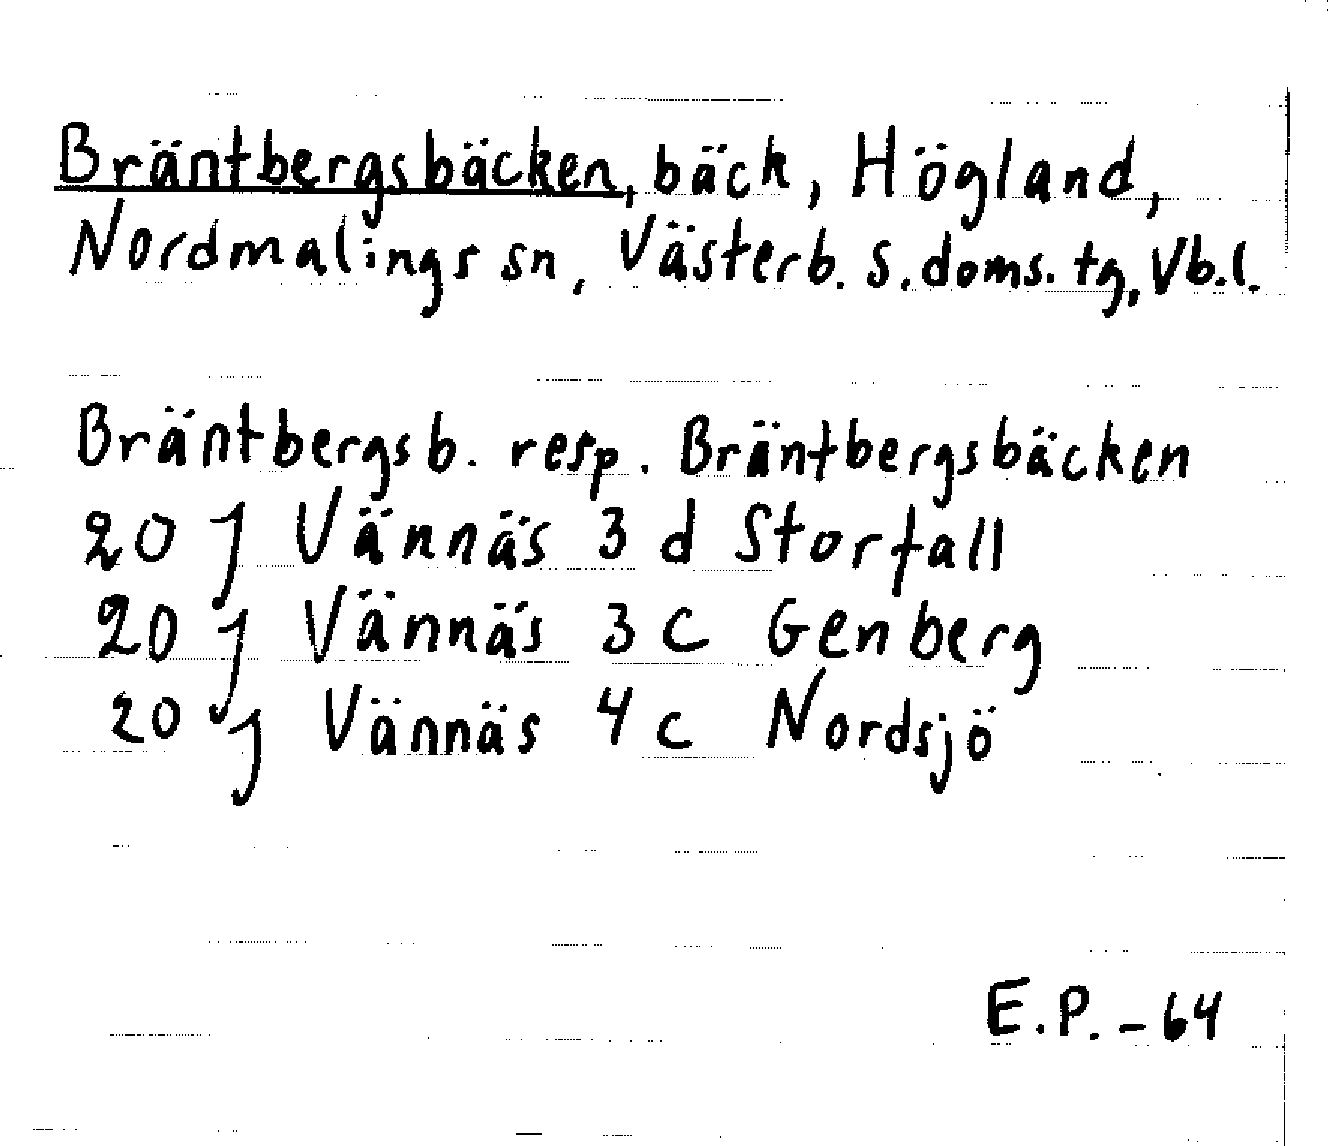 Bräntbergsbäcken, bäck, Högland,
Nordmalings sn, Västerb. s. doms. tg, Vb.l.
Bräntbergsb. resp. Bräntbergsbäcken
20 J Vännäs 3 d Storfall
20 J Vännäs 3 c Genberg
20 J Vännäs 4 c Nordsjö
E.P. - 64